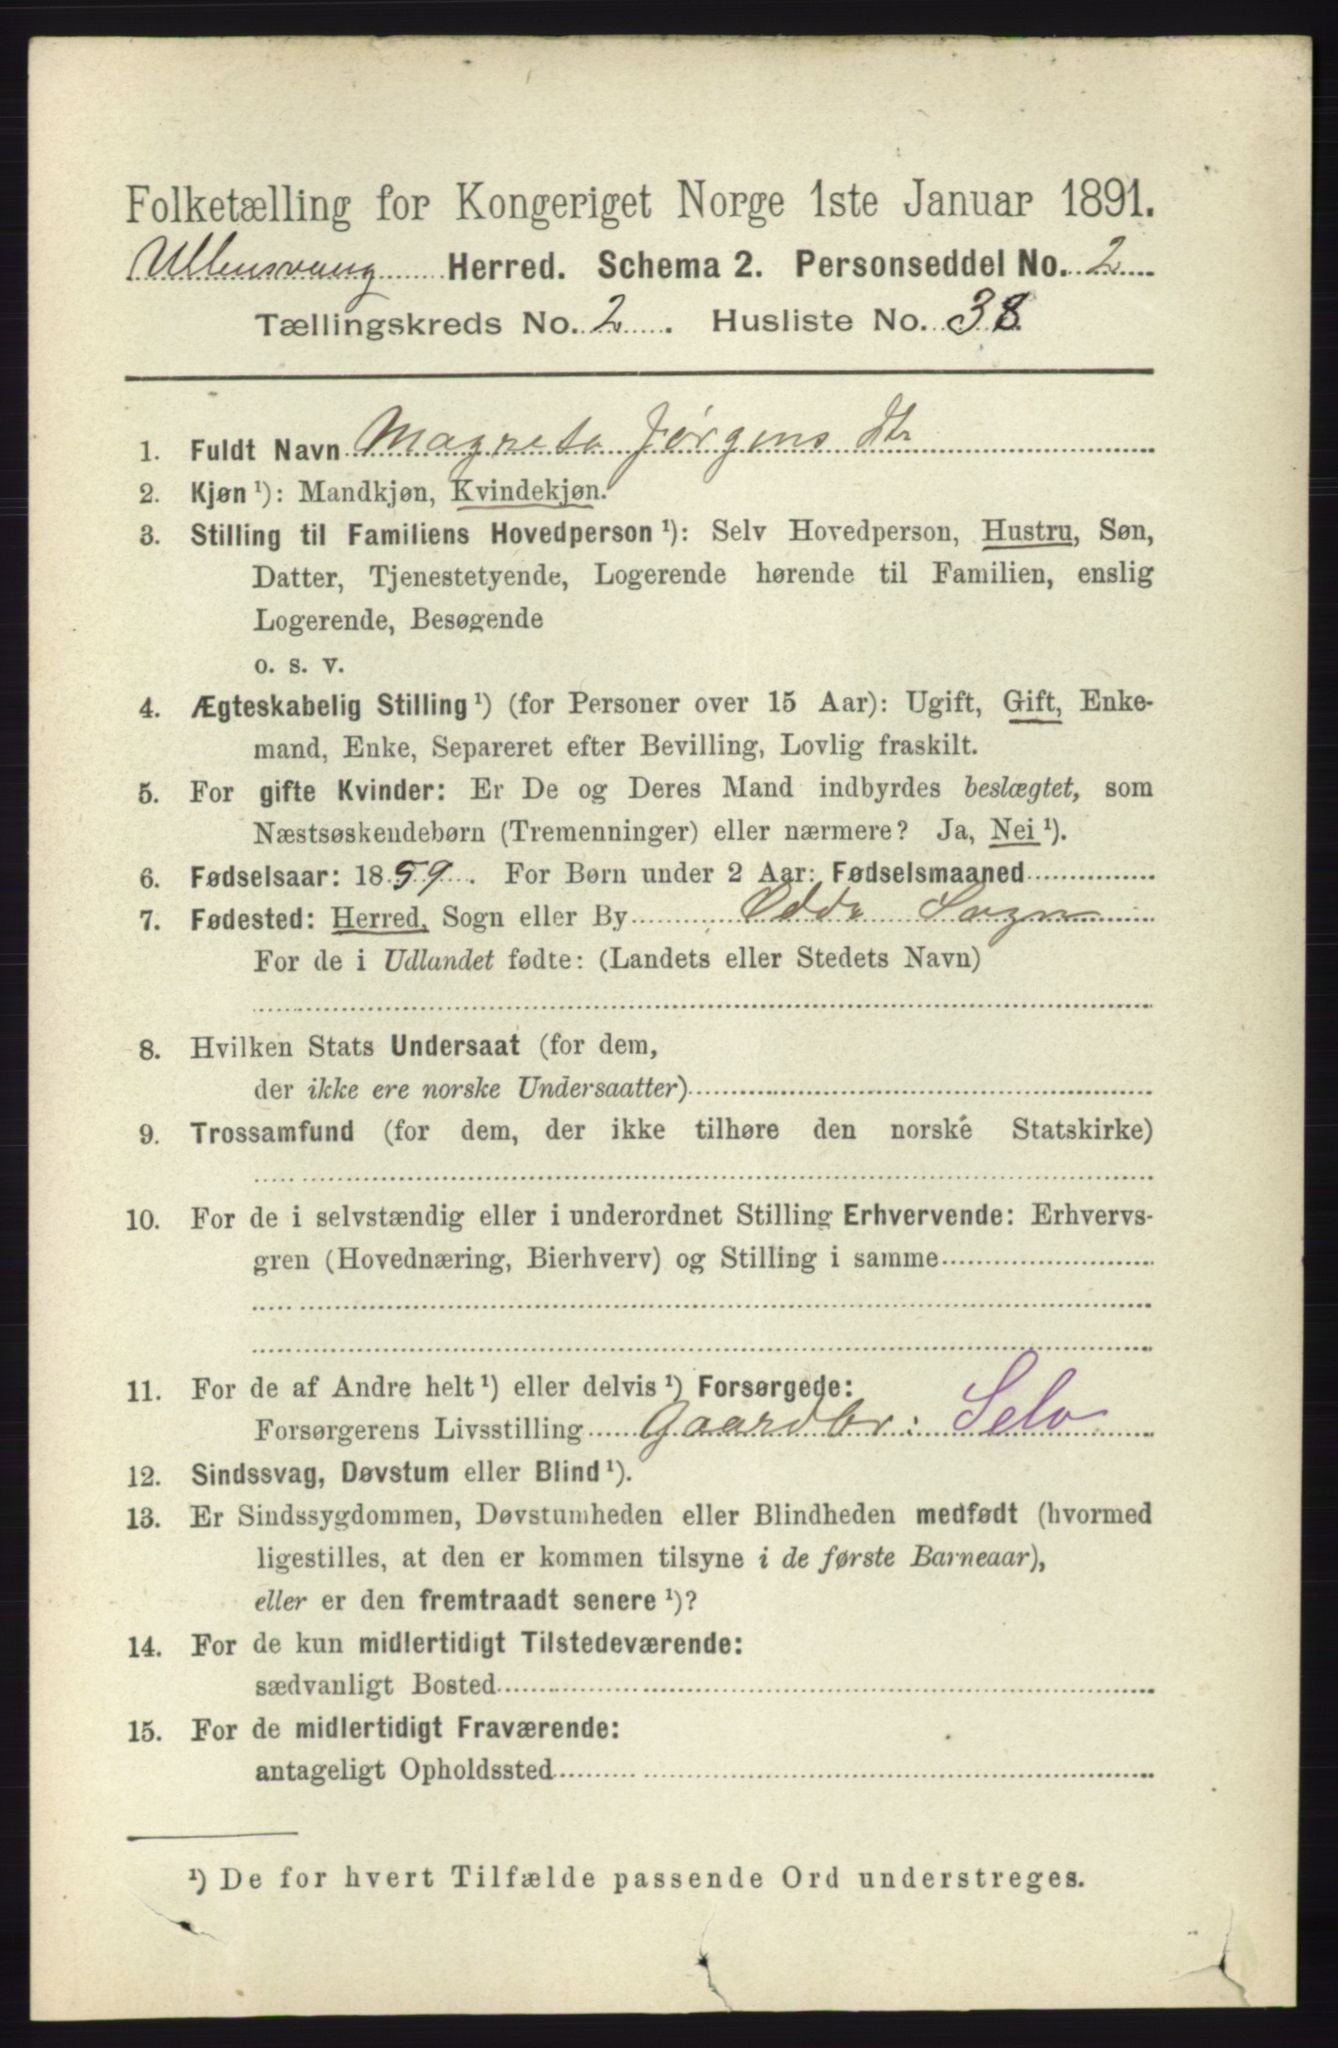 Folketælling for Kongeriget Norge 1ste Januar 1891.
Ullensvang Herred. Schema 2. Personseddel No. 2
Tællingskreds No. 2. Husliste No. 38
1. Fuldt Navn Magreta Jørgens Dtr
2. Kjøn ¹): Mandkjøn, Kvindekjøn.
3. Stilling til Familiens Hovedperson ¹): Selv Hovedperson, Hustru, Søn,
Datter, Tjenestetyende, Logerende hørende til Familien, enslig
Logerende, Besøgende
o. s. v.
4. Ægteskabelig Stilling ¹) (for Personer over 15 Aar): Ugift, Gift, Enke-
mand, Enke, Separeret efter Bevilling, Lovlig fraskilt.
5. For gifte Kvinder: Er De og Deres Mand indbyrdes beslægtet, som
Næstsøskendebørn (Tremenninger) eller nærmere? Ja, Nei ¹).
6. Fødselsaar: 1859. For Børn under 2 Aar: Fødselsmaaned
7. Fødested: Herred, Sogn eller By Odda Sogn
For de i Udlandet fødte: (Landets eller Stedets Navn)
8. Hvilken Stats Undersaat (for dem,
der ikke ere norske Undersaatter)
9. Trossamfund (for dem, der ikke tilhøre den norske Statskirke)
10. For de i selvstændig eller i underordnet Stilling Erhvervende: Erhvervs-
gren (Hovednæring, Bierhverv) og Stilling i samme
11. For de af Andre helt ¹) eller delvis ¹) Forsørgede:
Forsørgerens Livsstilling Gaardbr: Selv
12. Sindssvag, Døvstum eller Blind ¹).
13. Er Sindssygdommen, Døvstumheden eller Blindheden medfødt (hvormed
ligestilles, at den er kommen tilsyne i de første Barneaar),
eller er den fremtraadt senere ¹)?
14. For de kun midlertidigt Tilstedeværende:
sædvanligt Bosted
15. For de midlertidigt Fraværende:
antageligt Opholdssted
¹) De for hvert Tilfælde passende Ord understreges.